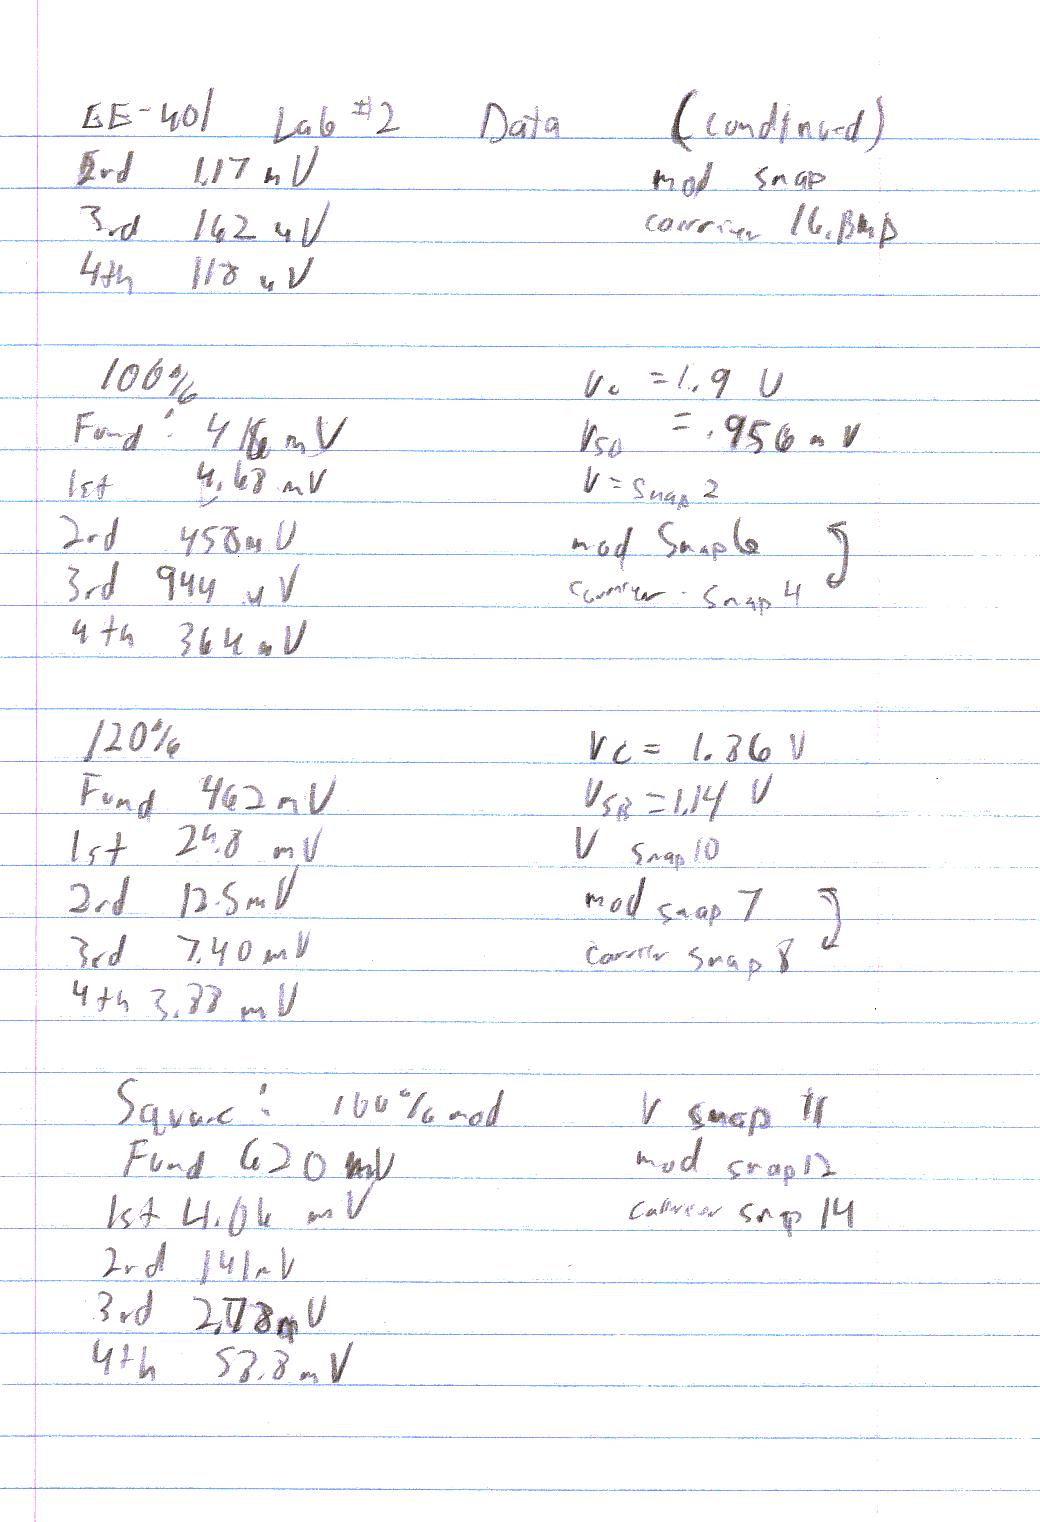 EE-401 Lab #2 Data (continued)
2rd 1.17 mV mod snap
3rd 162 uV carrier 16.Bmp
4th 118 uV
100% Vc = 1.9 V
Fund: 416 mV VSB = .956 mV
1st 4.68 mV V = snap 2
2rd 458 mV mod Snap 6
3rd 944 uV carrier - snap 4
4th 364 mV
120% Vc = 1.86 V
Fund 462 mV VSB = 1.14 V
1st 24.8 mV V snap 10
2rd 12.5 mV mod snap 7
3rd 7.40 mV carrier snap 8
4th 3.88 mV
Square: 100% mod V snap 11
Fund 620 mV mod snap 12
1st 4.06 mV carrier snap 14
2rd 141 mV
3rd mV
4th 58.8 mV